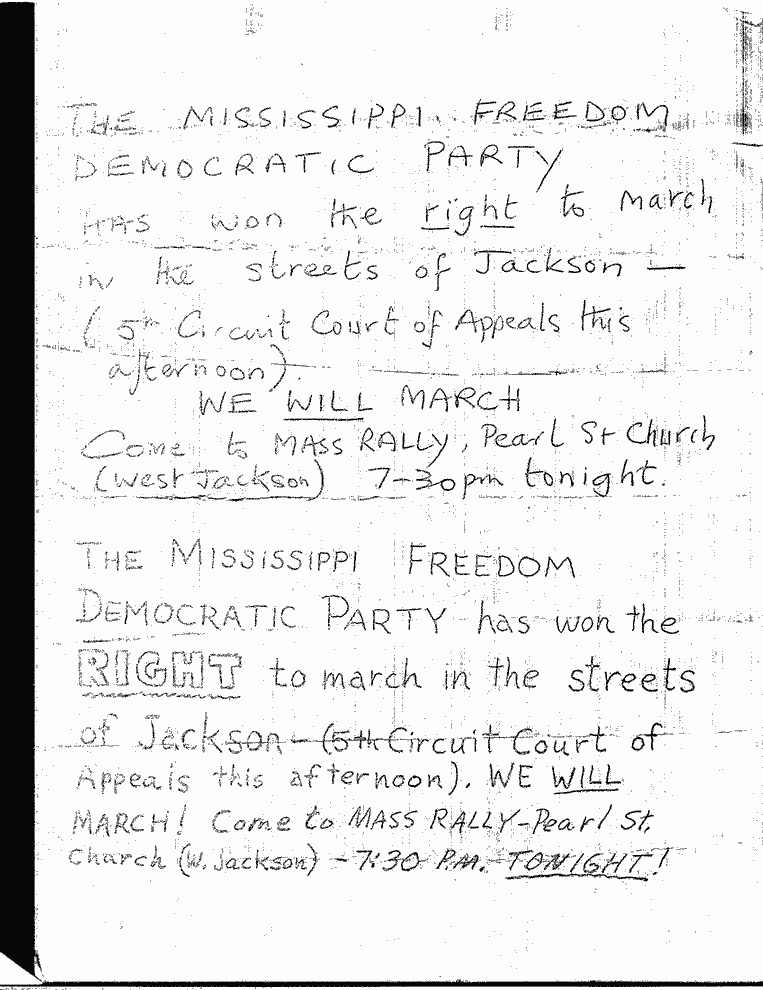 THE MISSISSIPPI FREEDOM
DEMOCRATIC PARTY
HAS won the right to march
in the streets of Jackson —
(5th Circuit Court of Appeals this
afternoon).
WE WILL MARCH
Come to MASS RALLY, Pearl St Church
(West Jackson) 7-30pm tonight.
THE MISSISSIPPI FREEDOM
DEMOCRATIC PARTY has won the
RIGHT to march in the streets
of Jackson - (5th Circuit Court of
Appeals this afternoon). WE WILL
MARCH! Come to MASS RALLY-Pearl St.
Church (W. Jackson) - 7:30 P.M. TONIGHT!